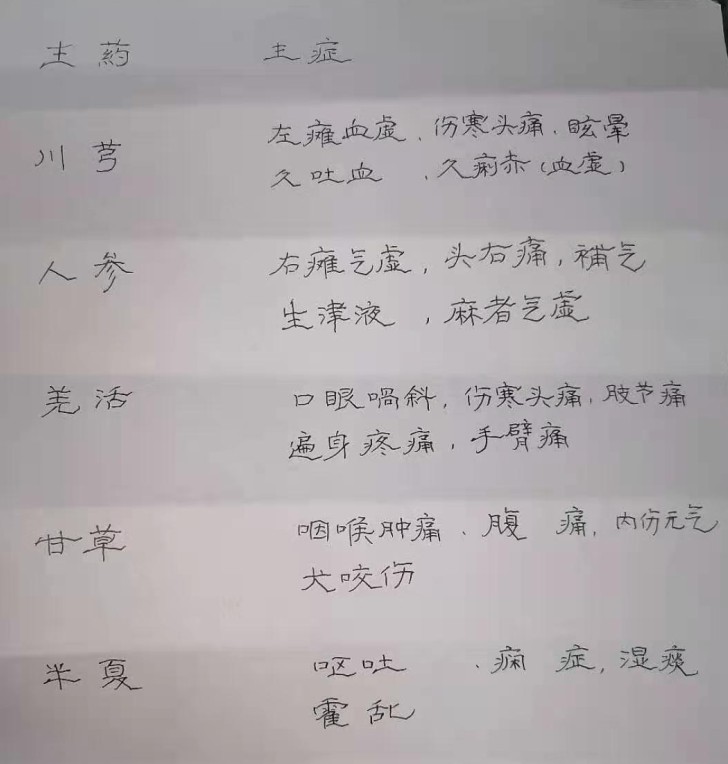 主藥 主症
川芎 左瘫血虚、伤寒头痛、眩晕
久吐血、久痢赤(血虚)
人参 右瘫气虚,头右痛,補气
生津液,麻者气虚
羌活 口眼喎斜,伤寒头痛,肢节痛
遍身疼痛,手臂痛
甘草 咽喉肿痛、腹痛,内伤元气
犬咬伤
半夏 呕吐、痫症,湿痰
霍乱